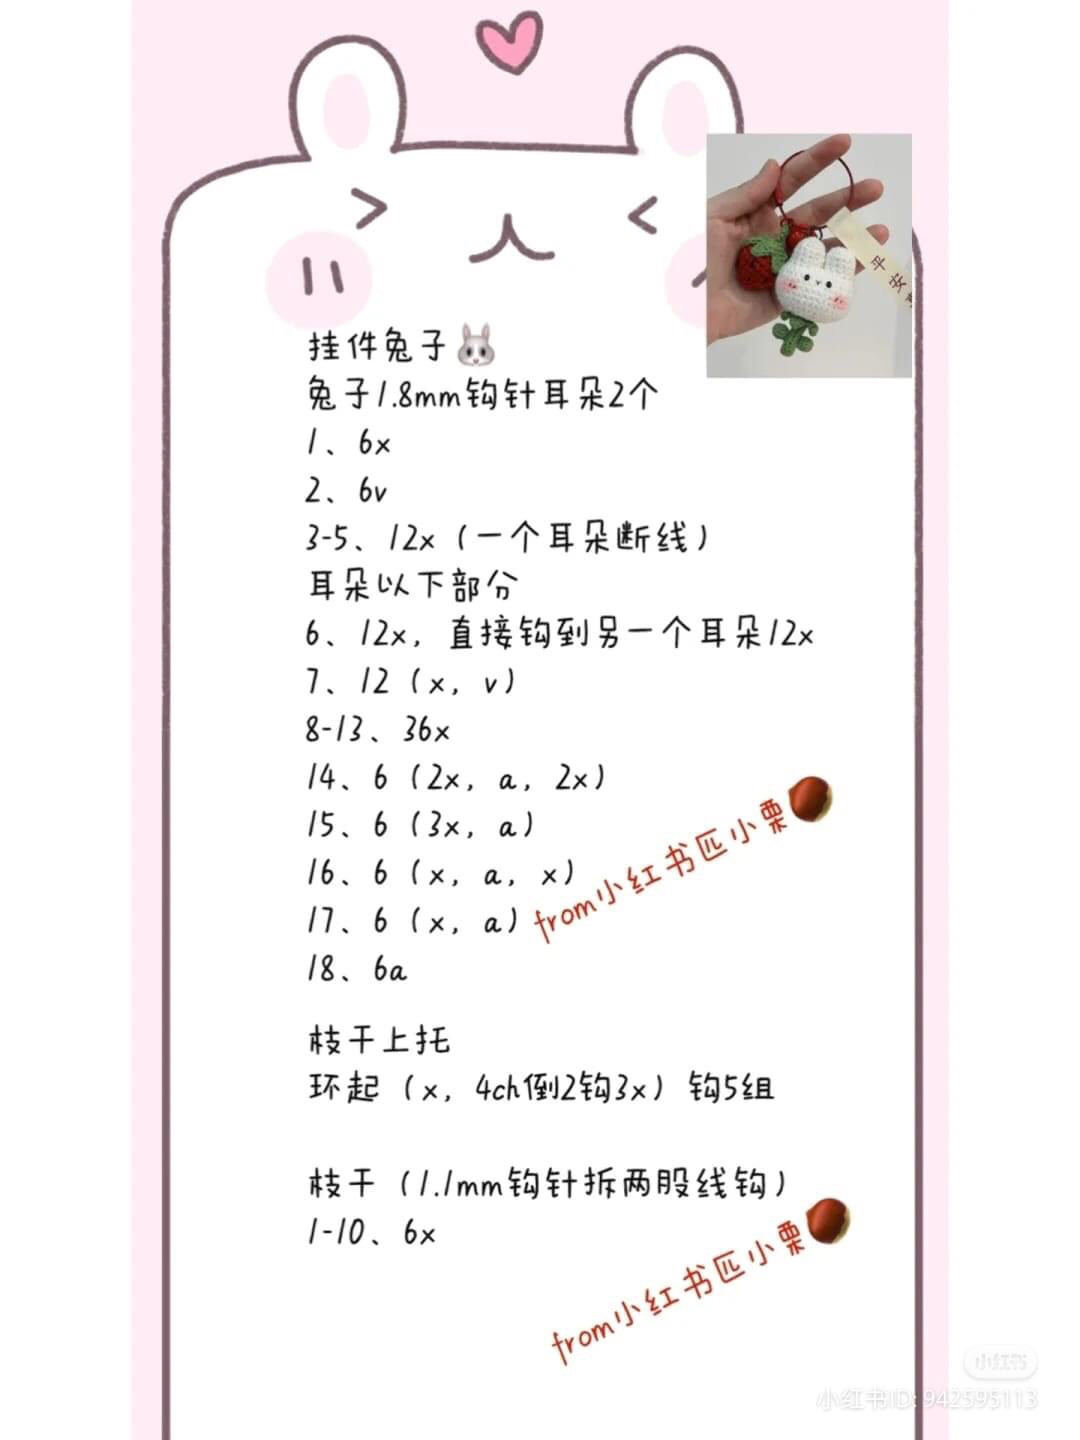 平安
挂件兔子
兔子1.8mm钩针耳朵2个
1、6x
2、6v
3-5、12x（一个耳朵断线）
耳朵以下部分
6、12x，直接钩到另一个耳朵12x
7、12（x，v）
8-13、36x
14、6（2x，a，2x）
15、6（3x，a）
16、6（x，a，x）
17、6（x，a）
from小红书匹小栗
18、6a
枝干上托
环起（x，4ch倒2钩3x）钩5组
枝干（1.1mm钩针拆两股线钩）
1-10、6x
from小红书匹小栗
小红书
小红书ID: 942595113